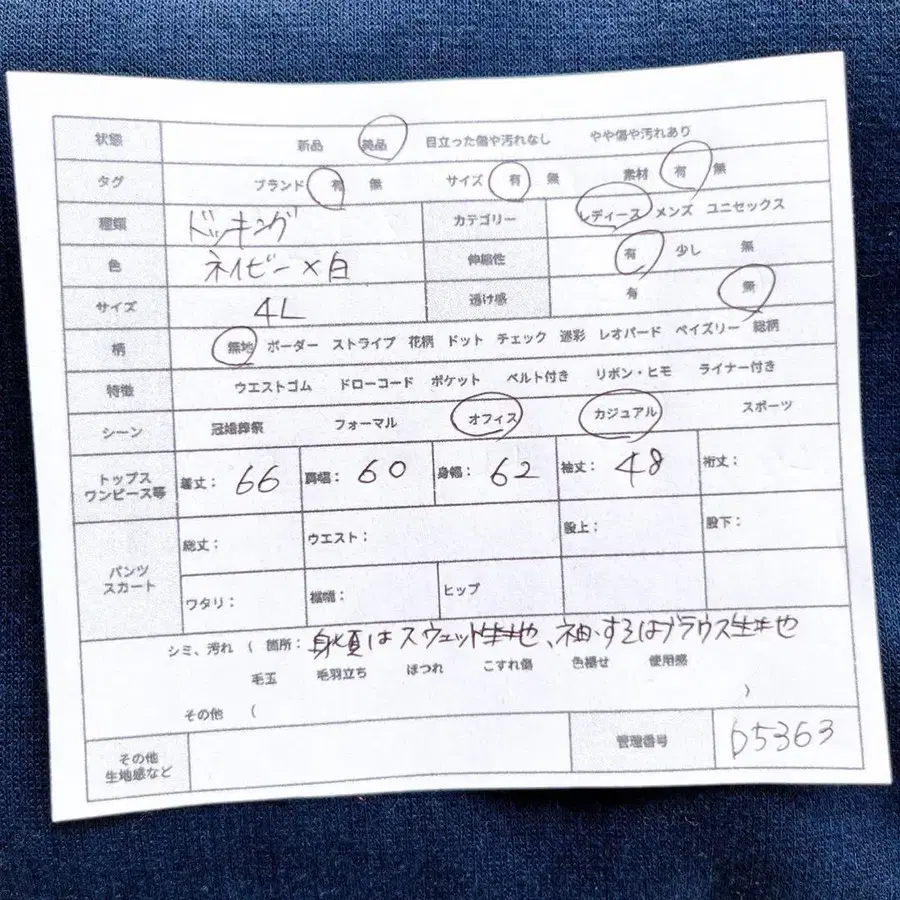 状態 新品 美品 目立った傷や汚れなし やや傷や汚れあり
タグ ブランド 有 無 サイズ 有 無 素材 有 無
種類 ドッキング カテゴリー レディース メンズ ユニセックス
色 ネイビー×白 伸縮性 有 少し 無
サイズ 4L 透け感 有 無
柄 無地 ボーダー ストライプ 花柄 ドット チェック 迷彩 レオパード ペイズリー 総柄
特徴 ウエストゴム ドローコード ポケット ベルト付き リボン・ヒモ ライナー付き
シーン 冠婚葬祭 フォーマル オフィス カジュアル スポーツ
トップス
ワンピース等 着丈: 66 肩幅: 60 身幅: 62 袖丈: 48 裄丈:
パンツ
スカート 総丈: ウエスト: 股上: 股下:
ワタリ: 裾幅: ヒップ
シミ、汚れ ( 箇所: 身頃はスウェット生地、袖・すそはブラウス生地
毛玉 毛羽立ち ほつれ こすれ傷 色褪せ 使用感
その他 ( )
その他
生地感など 管理番号 b5363